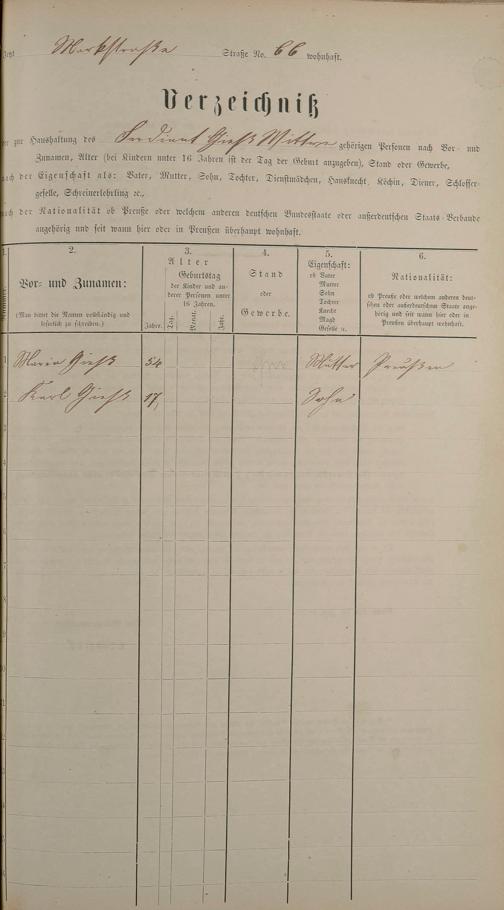 Jetzt Markstraße Straße No. 66 wohnhaft.
Verzeichniß
der zur Haushaltung des Ferdinant Gieß Wittwe gehörigen Personen nach Vor- und
Zunamen, Alter (bei Kindern unter 16 Jahren ist der Tag der Geburt anzugeben), Stand oder Gewerbe,
nach der Eigenschaft als: Vater, Mutter, Sohn, Tochter, Dienstmädchen, Hausknecht, Köchin, Diener, Schlosser-
geselle, Schreinerlehrling ꝛc.,
nach der Nationalität ob Preuße oder welchem anderen deutschen Bundesstaate oder außerdeutschen Staats-Verbande
angehörig und seit wann hier oder in Preußen überhaupt wohnhaft.
2. 3. 4. 5. 6.
Vor- und Zunamen:
(Man bittet die Namen vollständig und
leserlich zu schreiben.)
Alter
Geburtstag
der Kinder und an-
derer Personen unter
16 Jahren.
Jahre. Tag. Monat. Jahr.
Stand
oder
Gewerbe.
Eigenschaft:
ob Vater
Mutter
Sohn
Tochter
Knecht
Magd
Geselle ꝛc.
Nationalität:
ob Preuße oder welchem anderen deut-
schen oder außerdeutschen Staate ange-
hörig und seit wann hier oder in
Preußen überhaupt wohnhaft.
1 Maria Gieß 54 Mutter Preußen
2 Karl Gieß 17 Sohn
3
4
5
6
7
8
9